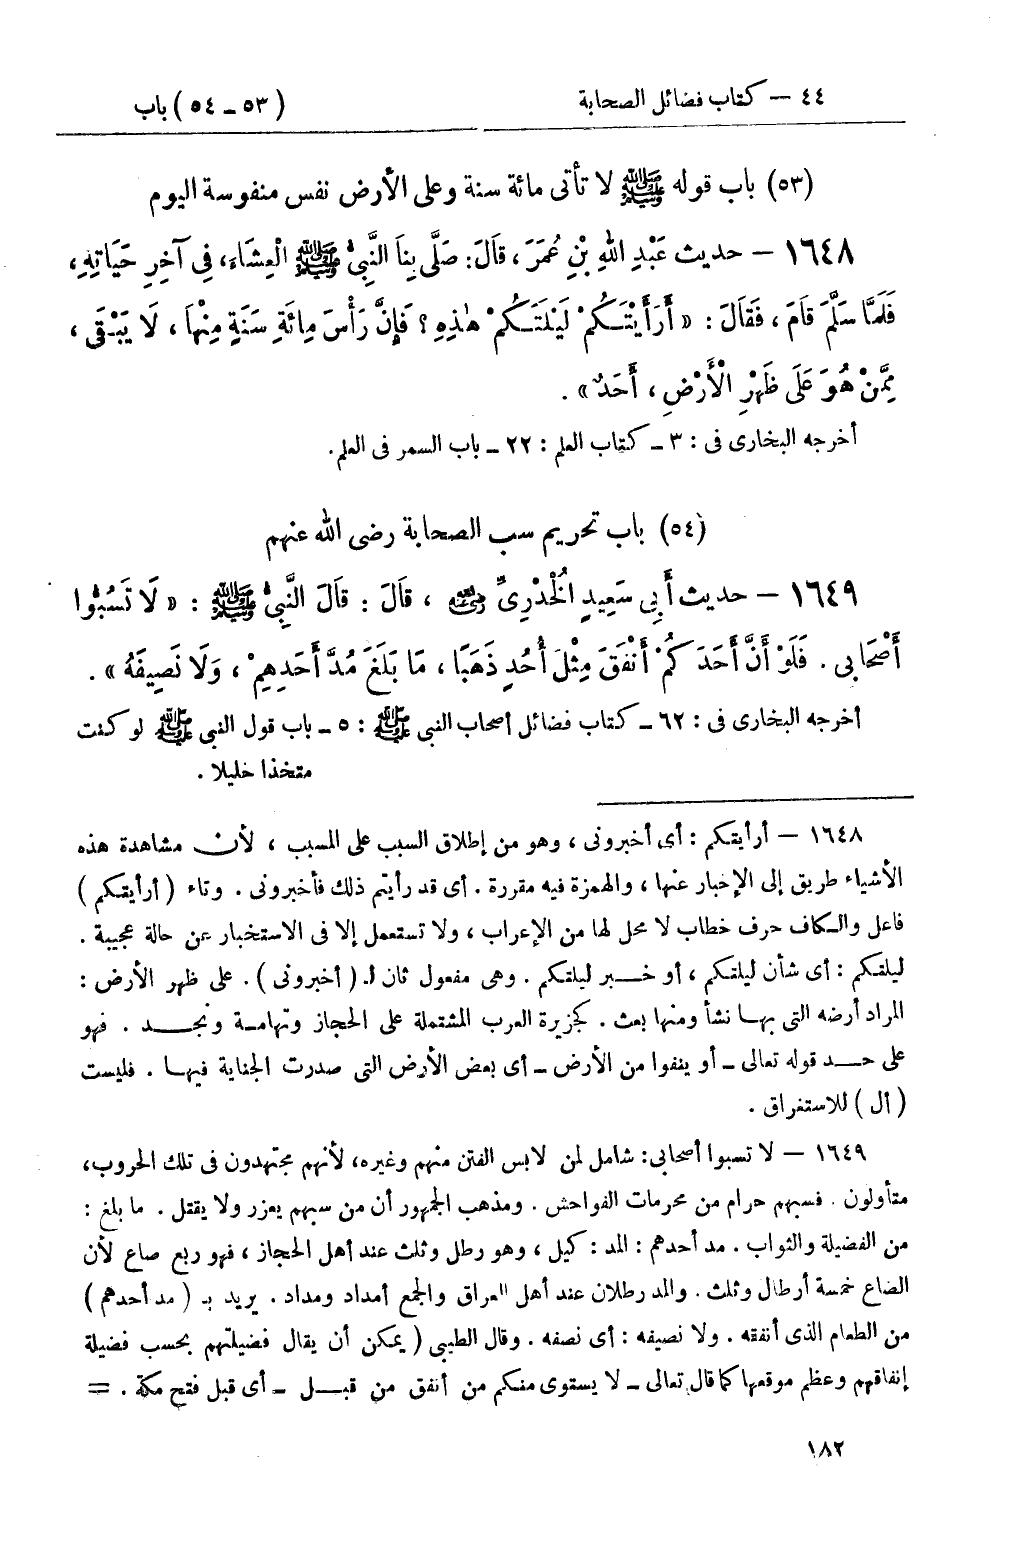 ٤٤ — كتاب فضائل الصحابة (٥٣ ـ ٥٤) باب
(٥٣) باب قوله ﷺ لا تأتى مائة سنة وعلى الأرض نفس منفوسة اليوم
١٦٤٨ — حديث عَبْدِ اللهِ بْنِ عُمَرَ ، قَالَ: صَلَّى بِنَا النَّبِىُّ ﷺ الْعِشَاءَ، فِى آخِرِ حَيَاتِهِ،
فَلَمَّا سَلَّمَ قَامَ ، فَقَالَ : « أَرَأَيْتَكُمْ لَيْلَتَكُمْ هٰذِهِ ؟ فَإِنَّ رَأْسَ مِائَةِ سَنَةٍ مِنْهَا ، لَا يَبْقَى ،
مِمَّنْ هُوَ عَلَى ظَهْرِ الْأَرْضِ ، أَحَدٌ » .
أخرجه البخارى فى : ٣ ـ كتاب العلم : ٢٢ ـ باب السمر فى العلم.
(٥٤) باب تحريم سب الصحابة رضى الله عنهم
١٦٤٩ — حديث أَبِى سَعِيدٍ الْخُدْرِىِّ رضي الله عنه ، قَالَ : قَالَ النَّبِىُّ ﷺ : « لَا تَسُبُّوا
أَصْحَابِى . فَلَوْ أَنَّ أَحَدَكُمْ أَنْفَقَ مِثْلَ أُحُدٍ ذَهَبًا ، مَا بَلَغَ مُدَّ أَحَدِهِمْ ، وَلَا نَصِيفَهُ » .
أخرجه البخارى فى : ٦٢ ـ كتاب فضائل أصحاب النبى ﷺ : ٥ ـ باب قول النبى ﷺ لو كنت
متخذا خليلا .
١٦٤٨ — أرأيتكم : أى أخبرونى ، وهو من إطلاق السبب على المسبب ، لأن مشاهدة هذه
الأشياء طريق إلى الإخبار عنها ، والهمزة فيه مقررة . أى قد رأيتم ذلك فأخبرونى . وتاء ( أرأيتكم )
فاعل والكاف حرف خطاب لا محل لها من الإعراب ، ولا تستعمل إلا فى الاستخبار عن حالة عجيبة .
ليلتكم : أى شأن ليلتكم ، أو خبر ليلتكم . وهى مفعول ثان لـ ( أخبرونى ) . على ظهر الأرض :
المراد أرضه التى بها نشأ ومنها بعث . كجزيرة العرب المشتملة على الحجاز وتهامة ونجد . فهو
على حد قوله تعالى ـ أو ينفوا من الأرض ـ أى بعض الأرض التى صدرت الجناية فيها . فليست
( أل ) للاستغراق .
١٦٤٩ — لا تسبوا أصحابى: شامل لمن لابس الفتن منهم وغيره، لأنهم مجتهدون فى تلك الحروب،
متأولون . فسبهم حرام من محرمات الفواحش . ومذهب الجمهور أن من سبهم يعزر ولا يقتل . ما بلغ :
من الفضيلة والثواب . مد أحدهم : المد : كيل ، وهو رطل وثلث عند أهل الحجاز ، فهو ربع صاع لأن
الصاع خمسة أرطال وثلث . والمد رطلان عند أهل العراق والجمع أمداد ومداد . يريد بـ ( مد أحدهم )
من الطعام الذى أنفقه . ولا نصيفه : أى نصفه . وقال الطيبى ( يمكن أن يقال فضيلتهم بحسب فضيلة
إنفاقهم وعظم موقعها كما قال تعالى ـ لا يستوى منكم من أنفق من قبل ـ أى قبل فتح مكة . =
١٨٢